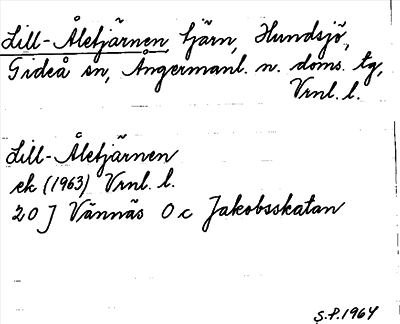 Lill-Åletjärnen, tjärn, Hundsjö,
Gideå sn, Ångermanl. n. doms. tg,
Vrnl. l.
Lill-Åletjärnen
ek (1963) Vrnl. l.
20 J Vännäs 0 c Jakobsskatan
S.P. 1964